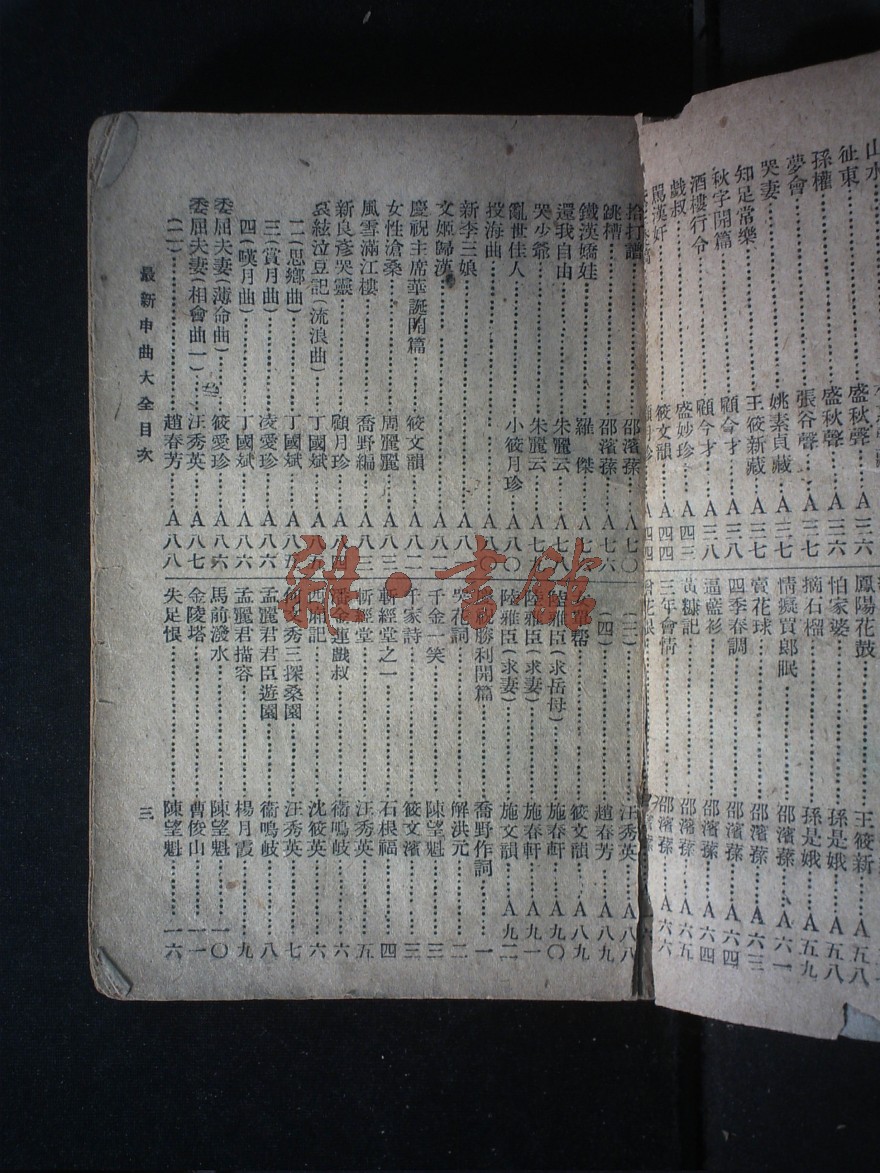 孫權……張谷聲……A三六
夢會……姚素貞藏……A三七
哭妻……王筱新藏……A三七
知足常樂……顧今才……A三八
秋字開篇
酒樓行令……盛妙珍……A四三
戲叔……筱文韻……A四四
罵漢奸……顧月珍……A四四
鳳陽花鼓……王筱新……A五八
怕家婆……孫是娥……A五八
摘石榴……孫是娥……A五九
情癡買郎眠……邵濱蓀……A六一
賣花球……邵濱蓀……A六三
四季春調……邵濱蓀……A六四
逼藍衫……邵濱蓀……A六四
黃糠記……邵濱蓀……A六五
三年會情……邵濱蓀……A六六
拾打譜……邵濱蓀……A七〇
跳槽……邵濱蓀……A七六
鐵漢嬌娃……羅傑
還我自由……朱麗云……A七八
哭少爺……朱麗云……A七九
亂世佳人……小筱月珍……A八〇
投海曲……A八〇
新李三娘……A八一
文姬歸漢
慶祝主席華誕開篇……筱文韻……A八二
女性滄桑……周麗麗……A八三
風雪滿江樓……喬野編……A八三
新良彥哭靈……顧月珍……A八四
哀絃泣豆記(流浪曲)……丁國斌……A八五
二(思鄉曲)……丁國斌……A八五
三(賞月曲)……凌愛珍……A八六
四(嘆月曲)……丁國斌……A八六
委屈夫妻(薄命曲)……筱愛珍……A八六
委屈夫妻(相會曲一)……汪秀英……A八七
(二)……趙春芳……A八八
(三)……汪秀英……A八八
(四)……趙春芳……A八九
筱文韻……A八九
陸雅臣(求岳母)……施春軒……A九〇
陸雅臣(求妻)……施春軒……A九一
陸雅臣(求妻)……施文韻……A九二
慶祝勝利開篇……喬野作詞……一
哭花詞……解洪元……二
千金一笑……陳望魁……三
千家詩……筱文濱……三
斬經堂之一……石根福……四
斬經堂……汪秀英……五
潘金蓮戲叔……衞鳴岐……六
西廂記……沈筱英……六
何文秀三探桑園……汪秀英……七
孟麗君君臣遊園……衞鳴岐……八
孟麗君描容……楊月霞……九
馬前潑水……陳望魁……一〇
金陵塔……曹俊山……一一
失足恨……陳望魁……一六
最新申曲大全目次
三
雜·書館